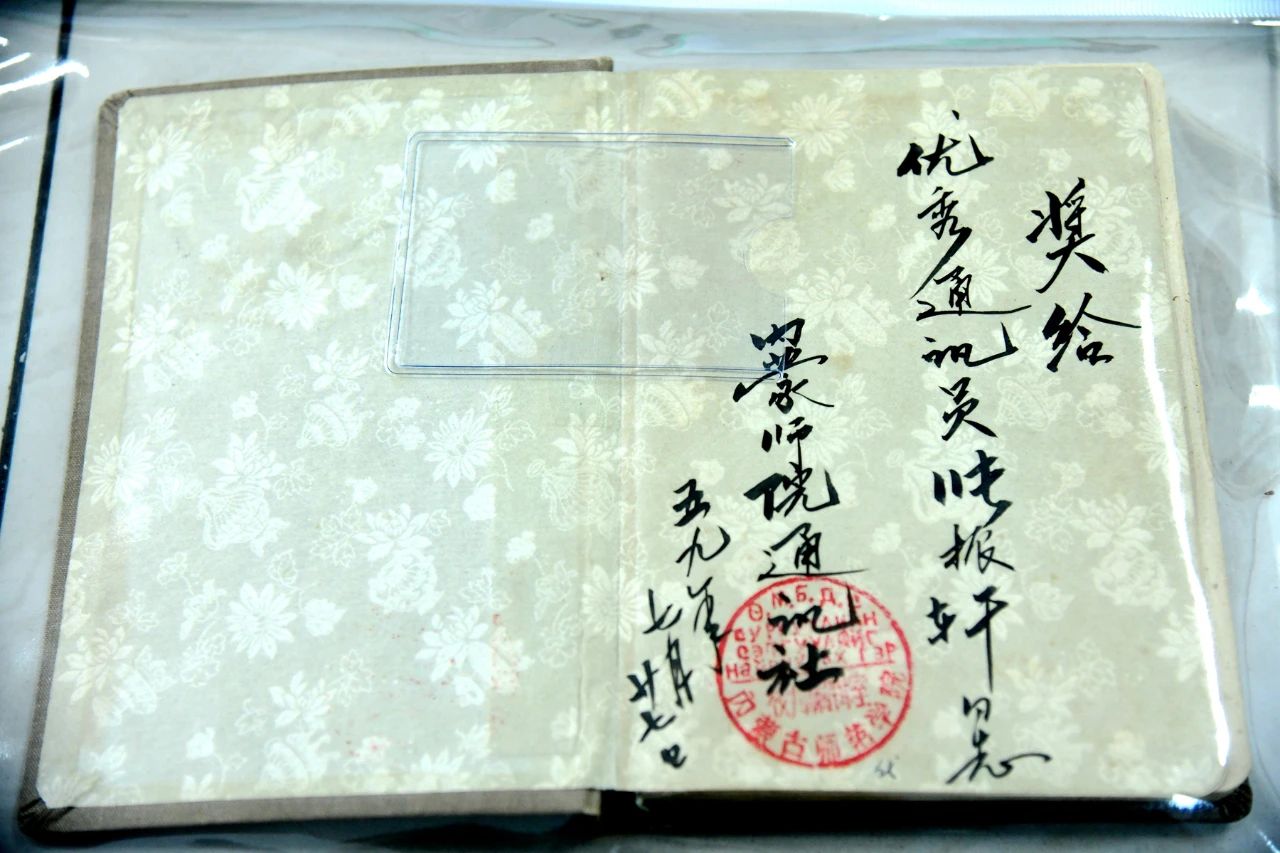 奖给
优秀通讯员张振轩同志
内蒙师院通讯社
五九年
七月廿七日
内蒙古师范学院